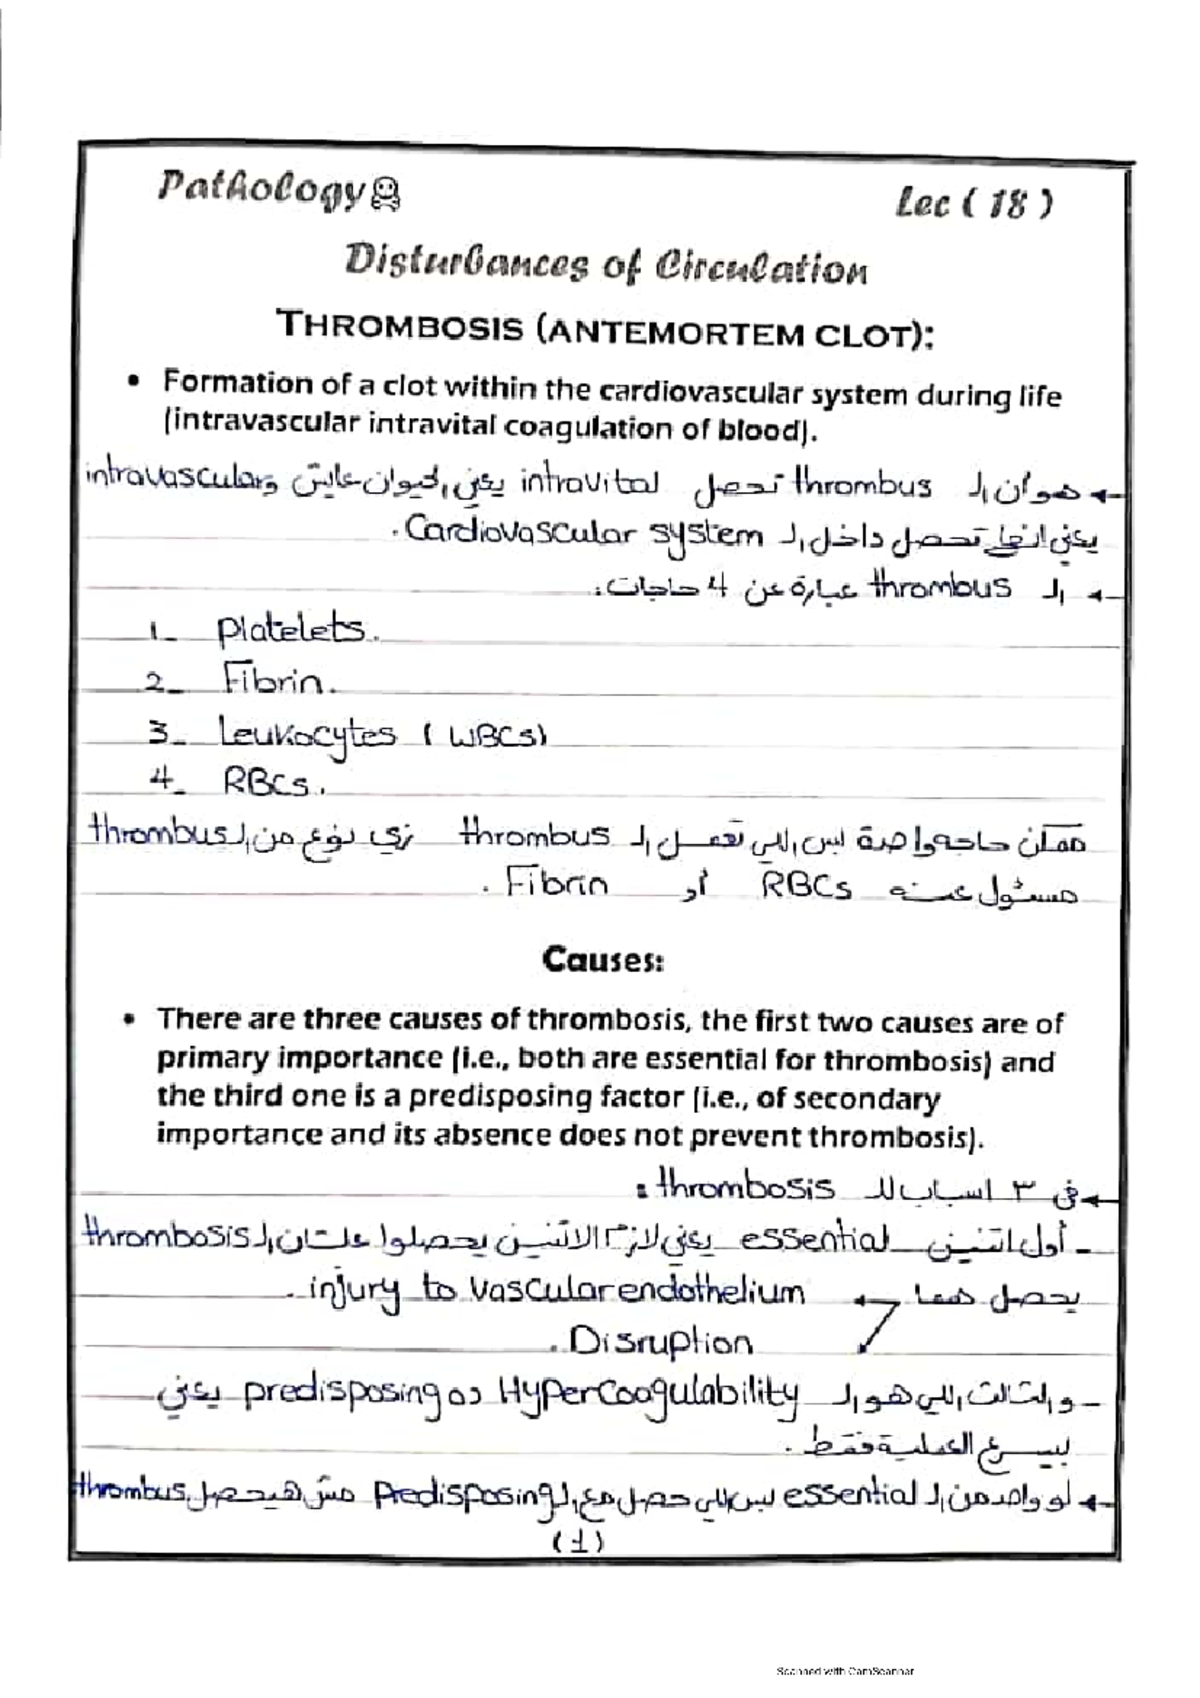 Pathology
Lec ( 18 )
Disturbances of Circulation
THROMBOSIS (ANTEMORTEM CLOT):
• Formation of a clot within the cardiovascular system during life
(intravascular intravital coagulation of blood).
← هو ان ال thrombus تحصل intravital يعني الحيوان عايش و intravascular
يعني انها تحصل داخل ال Cardiovascular system .
← ال thrombus عبارة عن 4 حاجات :
1- Platelets.
2- Fibrin.
3- Leukocytes ( WBCs)
4- RBCs.
ممكن حاجه واحدة بس اللي تعمل ال thrombus زي نوع من ال thrombus
مسئول عنه RBCs أو Fibrin .
Causes:
• There are three causes of thrombosis, the first two causes are of
primary importance (i.e., both are essential for thrombosis) and
the third one is a predisposing factor (i.e., of secondary
importance and its absence does not prevent thrombosis).
← في ٣ اسباب لل thrombosis :
- أول اتنين essential يعني لازم الاتنين يحصلوا علشان ال thrombosis
يحصل هما ← injury to vascular endothelium .
Disruption .
- والتالت اللي هو ال Hypercoagulability ده predisposing يعني
بيسرع العملية فقط .
← لو واحد من ال essential بس اللي حصل مع ال Predisposing مش هيحصل thrombus
(1)
Scanned with CamScanner